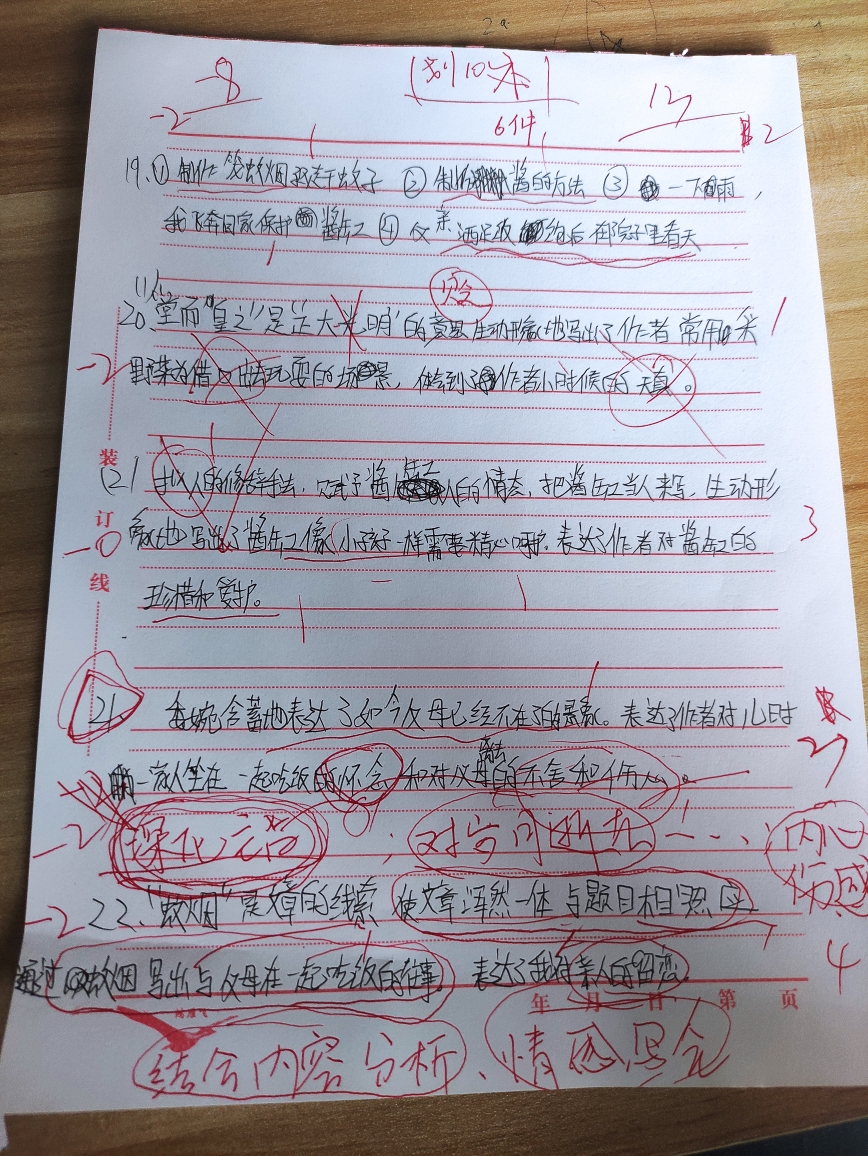 -8
划10本
12
-2
6件
2
19、①制作篓蚊烟和赶走干蚊子 ②制作酱的方法 ③一下雨，
我飞奔回家保护酱缸 ④父亲酒足饭饱后在院子里看天
贬
20、堂而"皇之"是"正大光明"的意思 生动形象地写出了作者常用采 1
-2 野菜为借口出去玩耍的场景，体会到了作者小时候的天真。
装
21 拟人的修辞手法，赋予酱缸人的情态，把酱缸当人来写，生动形
订
象地写出了酱缸像小孩子一样需要精心呵护，表达了作者对酱缸的 3
-0
线
珍惜和爱护。
21、委婉含蓄地表达了如今父母已经不在了的意象。表达了作者对儿时
一家人坐在一起吃饭的怀念和对父母离去的不舍和伤心。 2
-2 深化主旨
内心
伤感
-2 22、"蚊烟"是文章的线索 使文章浑然一体 与题目相照应
通过蚊烟写出与父母在一起吃饭的往事 表达了我对亲人的留恋 4
年 月 日 第 页
结合内容分析、情感